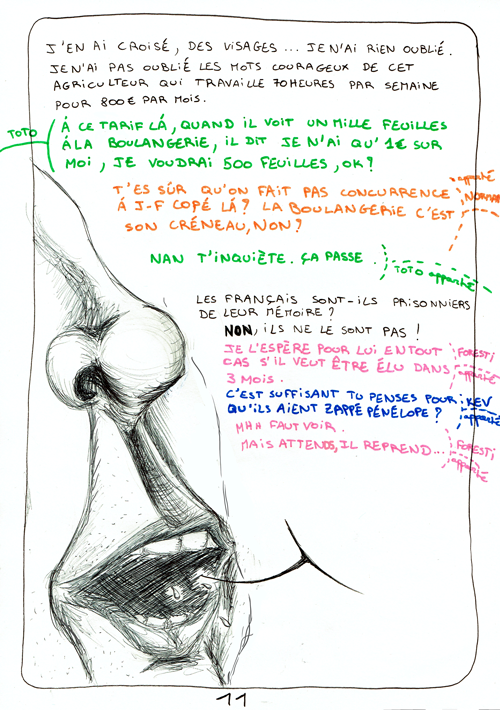 J'EN AI CROISÉ, DES VISAGES ... JE N'AI RIEN OUBLIÉ.
JE N'AI PAS OUBLIÉ LES MOTS COURAGEUX DE CET
AGRICULTEUR QUI TRAVAILLE 70 HEURES PAR SEMAINE
POUR 800€ PAR MOIS.
TOTO
À CE TARIF LÁ, QUAND IL VOIT UN MILLE FEUILLES
ÁLA BOULANGERIE, IL DIT JE N'AI QU'1€ SUR
MOI, JE VOUDRAI 500 FEUILLES, OK?
apparté
T'ES SÛR QU'ON FAIT PAS CONCURRENCE
Á J-F COPÉ LÁ? LA BOULANGERIE C'EST
SON CRÉNEAU, NON?
NAN T'INQUIÈTE. ÇA PASSE.
TOTO apparté
LES FRANÇAIS SONT-ILS PRISONNIERS
DE LEUR MÉMOIRE?
NON, ILS NE LE SONT PAS!
JE L'ESPÈRE POUR LUI EN TOUT FORESTI
CAS S'IL VEUT ÊTRE ÉLU DANS apparté
3 MOIS.
C'EST SUFFISANT TU PENSES POUR KEV
QU'ILS AIENT ZAPPÉ PÉNÉLOPE? apparté
MHH FAUT VOIR.
MAIS ATTENDS, IL REPREND... FORESTI
apparté
11